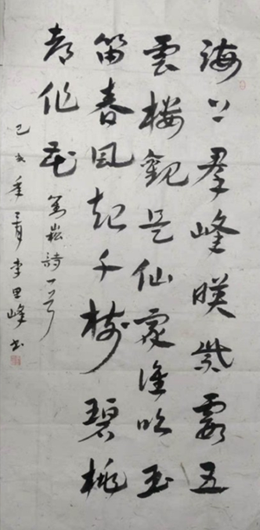 海上羣峰暎紫霞五
雲樓觀是仙家誰吹玉
笛春風起千樹碧桃
都作花
崧詩一首
己亥年三月李里峰书